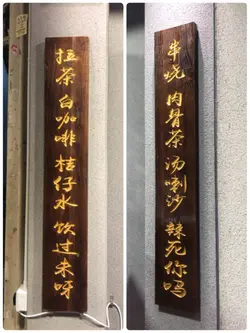 拉茶白咖啡桔仔水饮过未呀
串烧肉骨茶汤喇沙辣死你吗